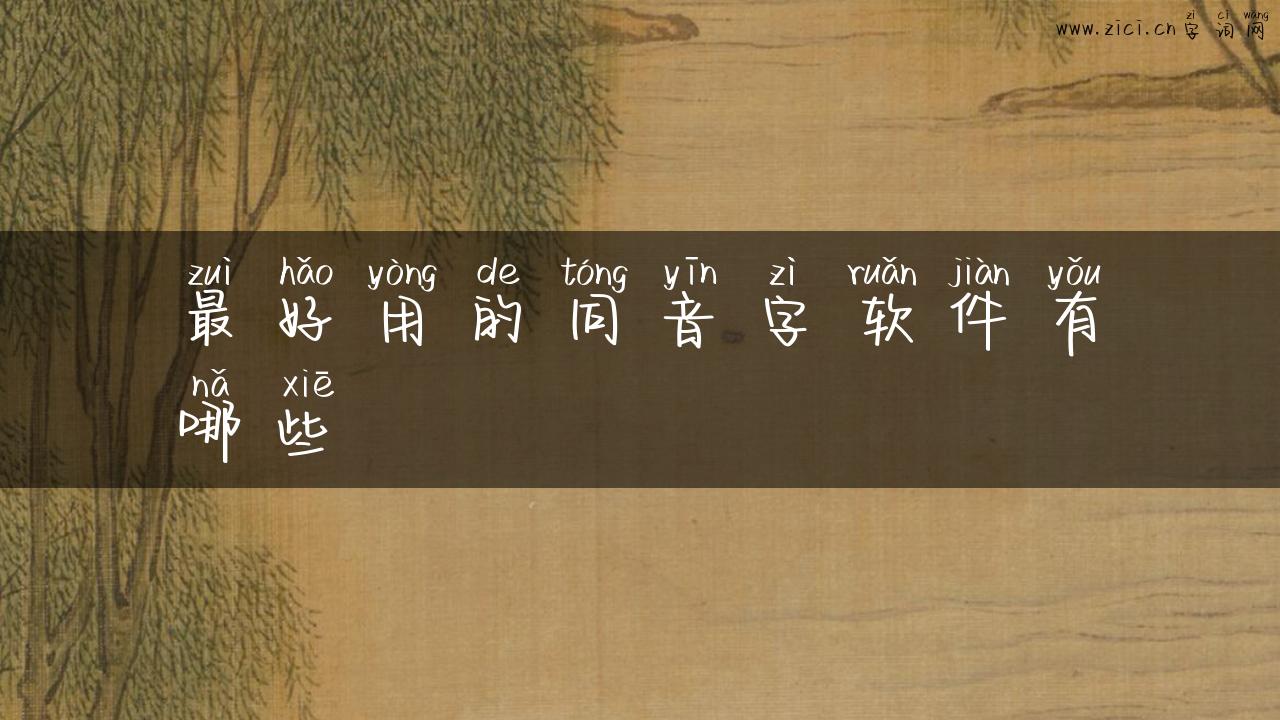 zì cí wǎng
www.zici.cn 字词网
zuì hǎo yòng de tóng yīn zì ruǎn jiàn yǒu
最好用的同音字软件有
nǎ xiē
哪些